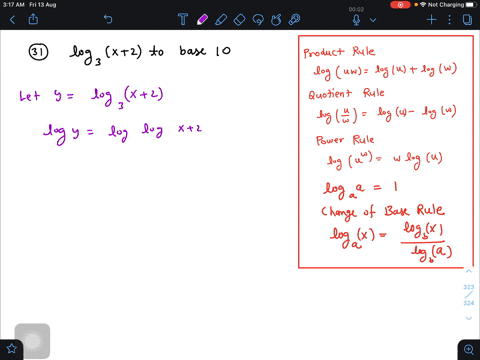 3:17 AM Fri 13 Aug
00:02
Not Charging
31 log₃ (x+2) to base 10
Let y = log₃ (x+2)
log y = log log x+2
Product Rule
log (uw) = log (u) + log (w)
Quotient Rule
log (u/w) = log (u) - log (w)
Power Rule
log (u^w) = w log (u)
logₐ a = 1
Change of Base Rule
logₐ (x) = log_b (x) / log_b (a)
323 / 524